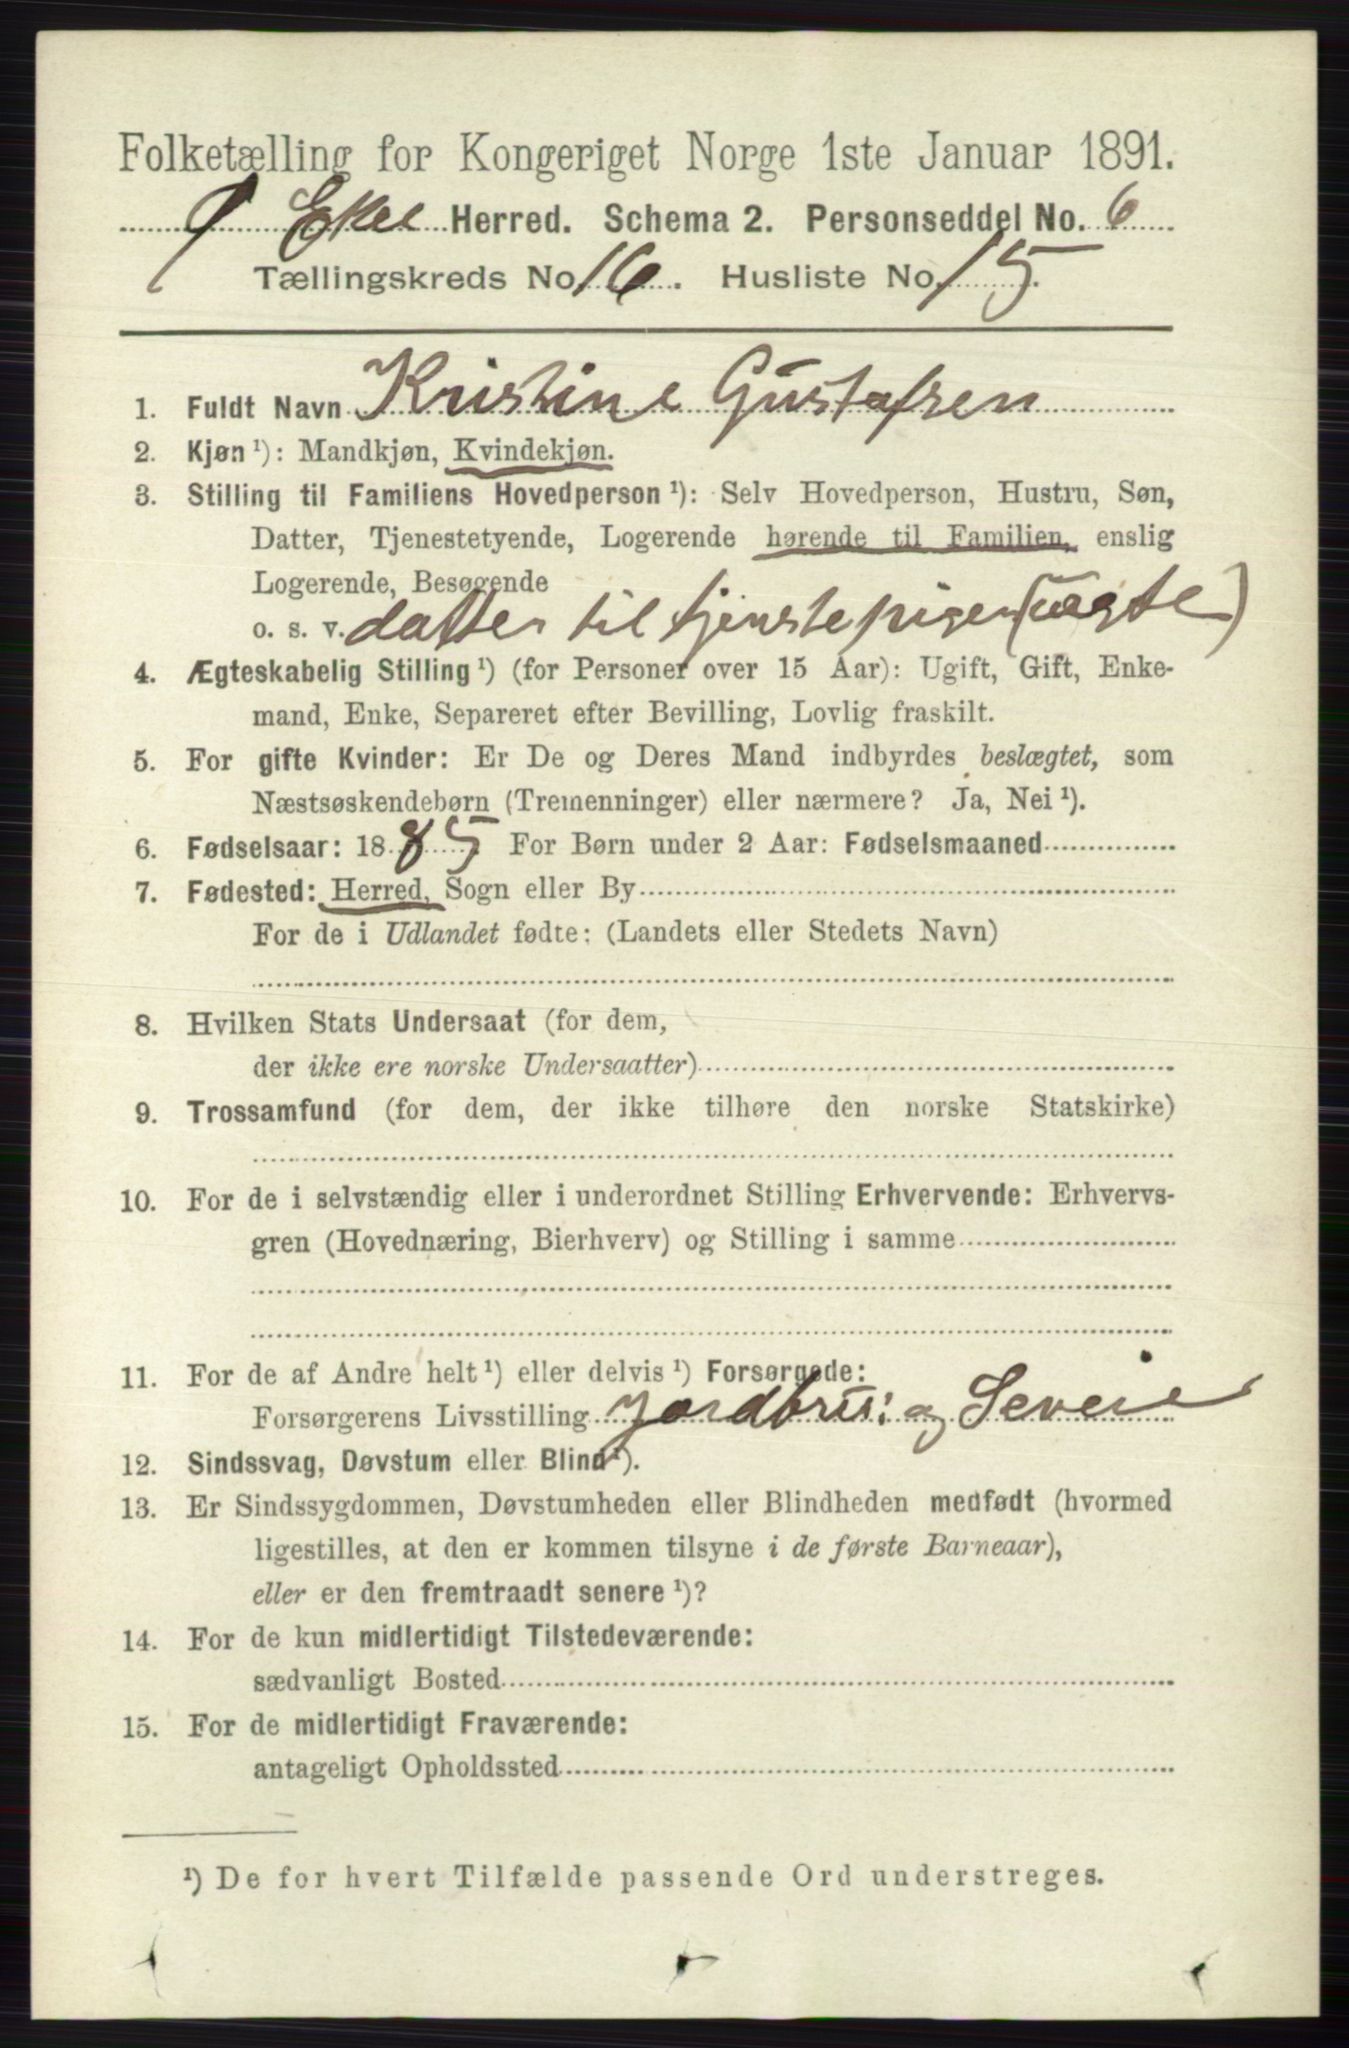 Folketælling for Kongeriget Norge 1ste Januar 1891.
Ø Eker Herred. Schema 2. Personseddel No. 6
Tællingskreds No. 16. Husliste No. 15.
1. Fuldt Navn Kristine Gustafsen
2. Kjøn ¹): Mandkjøn, Kvindekjøn.
3. Stilling til Familiens Hovedperson ¹): Selv Hovedperson, Hustru, Søn,
Datter, Tjenestetyende, Logerende hørende til Familien, enslig
Logerende, Besøgende
o. s. v. datter til tjenstepigen (uægte)
4. Ægteskabelig Stilling ¹) (for Personer over 15 Aar): Ugift, Gift, Enke-
mand, Enke, Separeret efter Bevilling, Lovlig fraskilt.
5. For gifte Kvinder: Er De og Deres Mand indbyrdes beslægtet, som
Næstsøskendebørn (Tremenninger) eller nærmere? Ja, Nei ¹).
6. Fødselsaar: 1885 For Børn under 2 Aar: Fødselsmaaned
7. Fødested: Herred, Sogn eller By
For de i Udlandet fødte: (Landets eller Stedets Navn)
8. Hvilken Stats Undersaat (for dem,
der ikke ere norske Undersaatter)
9. Trossamfund (for dem, der ikke tilhøre den norske Statskirke)
10. For de i selvstændig eller i underordnet Stilling Erhvervende: Erhvervs-
gren (Hovednæring, Bierhverv) og Stilling i samme
11. For de af Andre helt ¹) eller delvis ¹) Forsørgede:
Forsørgerens Livsstilling Jordbru: og
12. Sindssvag, Døvstum eller Blind ¹).
13. Er Sindssygdommen, Døvstumheden eller Blindheden medfødt (hvormed
ligestilles, at den er kommen tilsyne i de første Barneaar),
eller er den fremtraadt senere ¹)?
14. For de kun midlertidigt Tilstedeværende:
sædvanligt Bosted
15. For de midlertidigt Fraværende:
antageligt Opholdssted
¹) De for hvert Tilfælde passende Ord understreges.